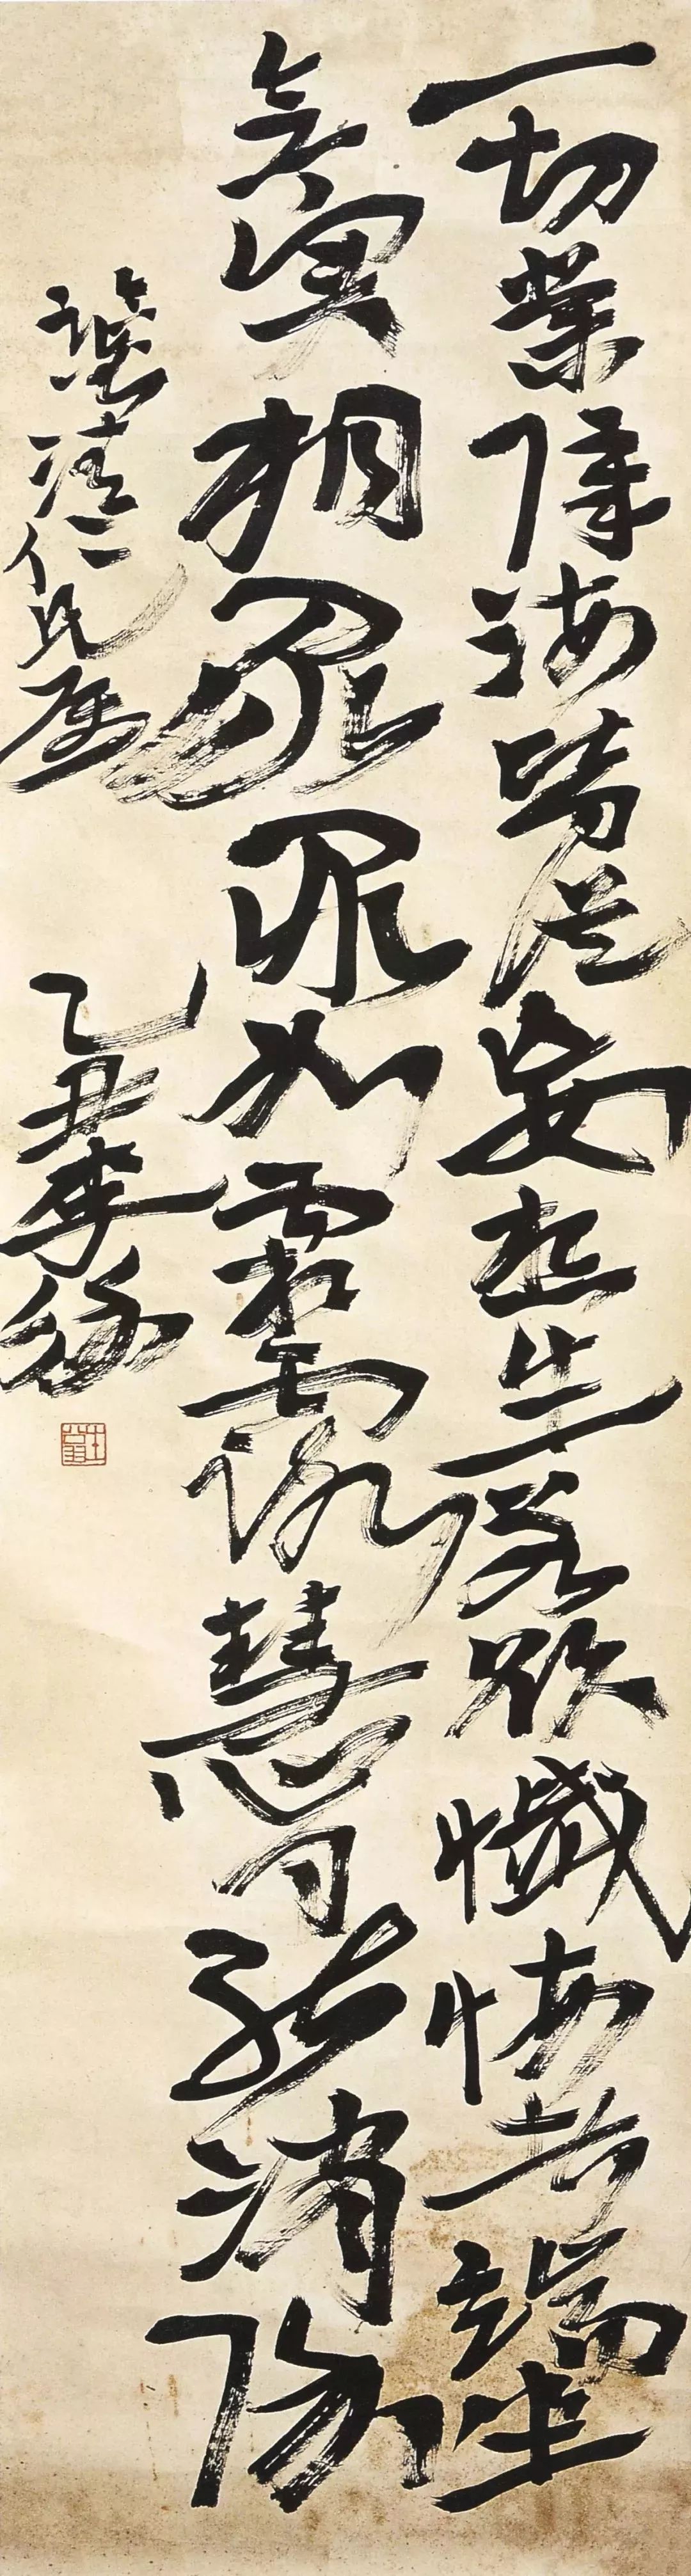 一切業障海皆從妄想生若欲懺悔者端坐
念実相眾罪如霜露慧日能消除
清仁兄屬
乙丑李徐
生翁